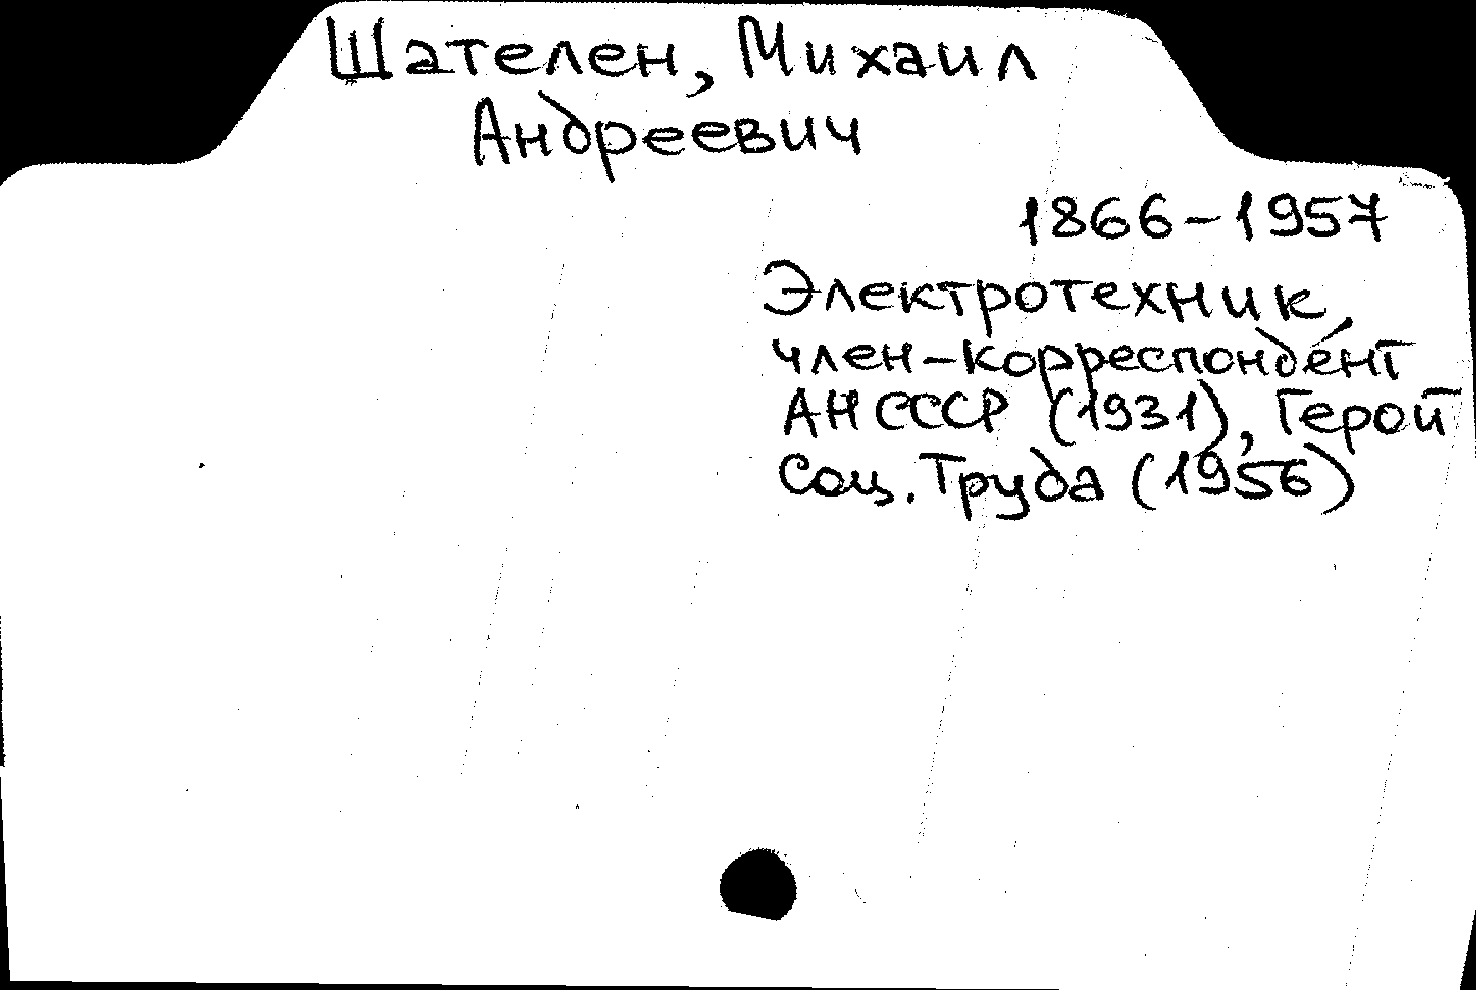 Шателен, Михаил
Андреевич
1866-1957
Электротехник,
член-корреспондент
АН СССР (1931), Герой
Соц. Труда (1956)